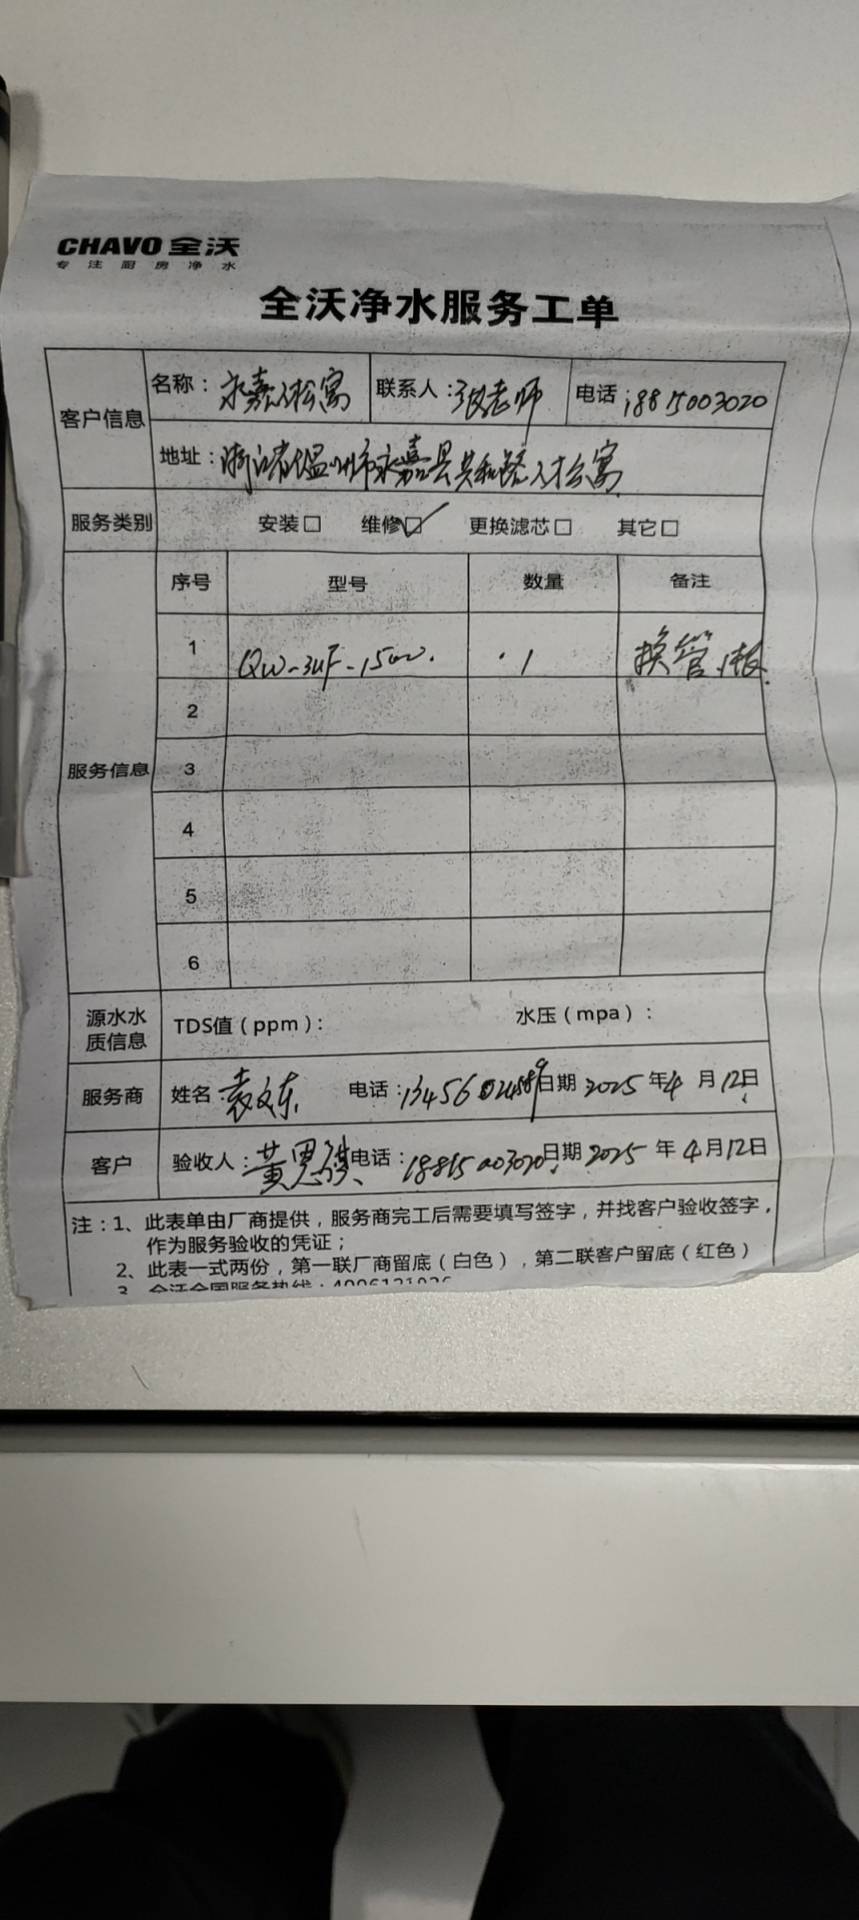 CHAVO 全沃
专注厨房净水
全沃净水服务工单
客户信息
名称：永嘉人才公寓 联系人：张老师 电话：18815003020
地址：浙江省温州市永嘉县共和路人才公寓
服务类别 安装□ 维修☑ 更换滤芯□ 其它□
服务信息
序号 型号 数量 备注
1 QW-3UF-1500. 1 换管 1根
2
3
4
5
6
源水水质信息 TDS值（ppm）： 水压（mpa）：
服务商 姓名：袁文东 电话： 日期 2025年4月12日
客户 验收人：黄思祺 电话：18815003020 日期 2025年4月12日
注：1、此表单由厂商提供，服务商完工后需要填写签字，并找客户验收签字，
作为服务验收的凭证；
2、此表一式两份，第一联厂商留底（白色），第二联客户留底（红色）
3 全沃全国服务热线：